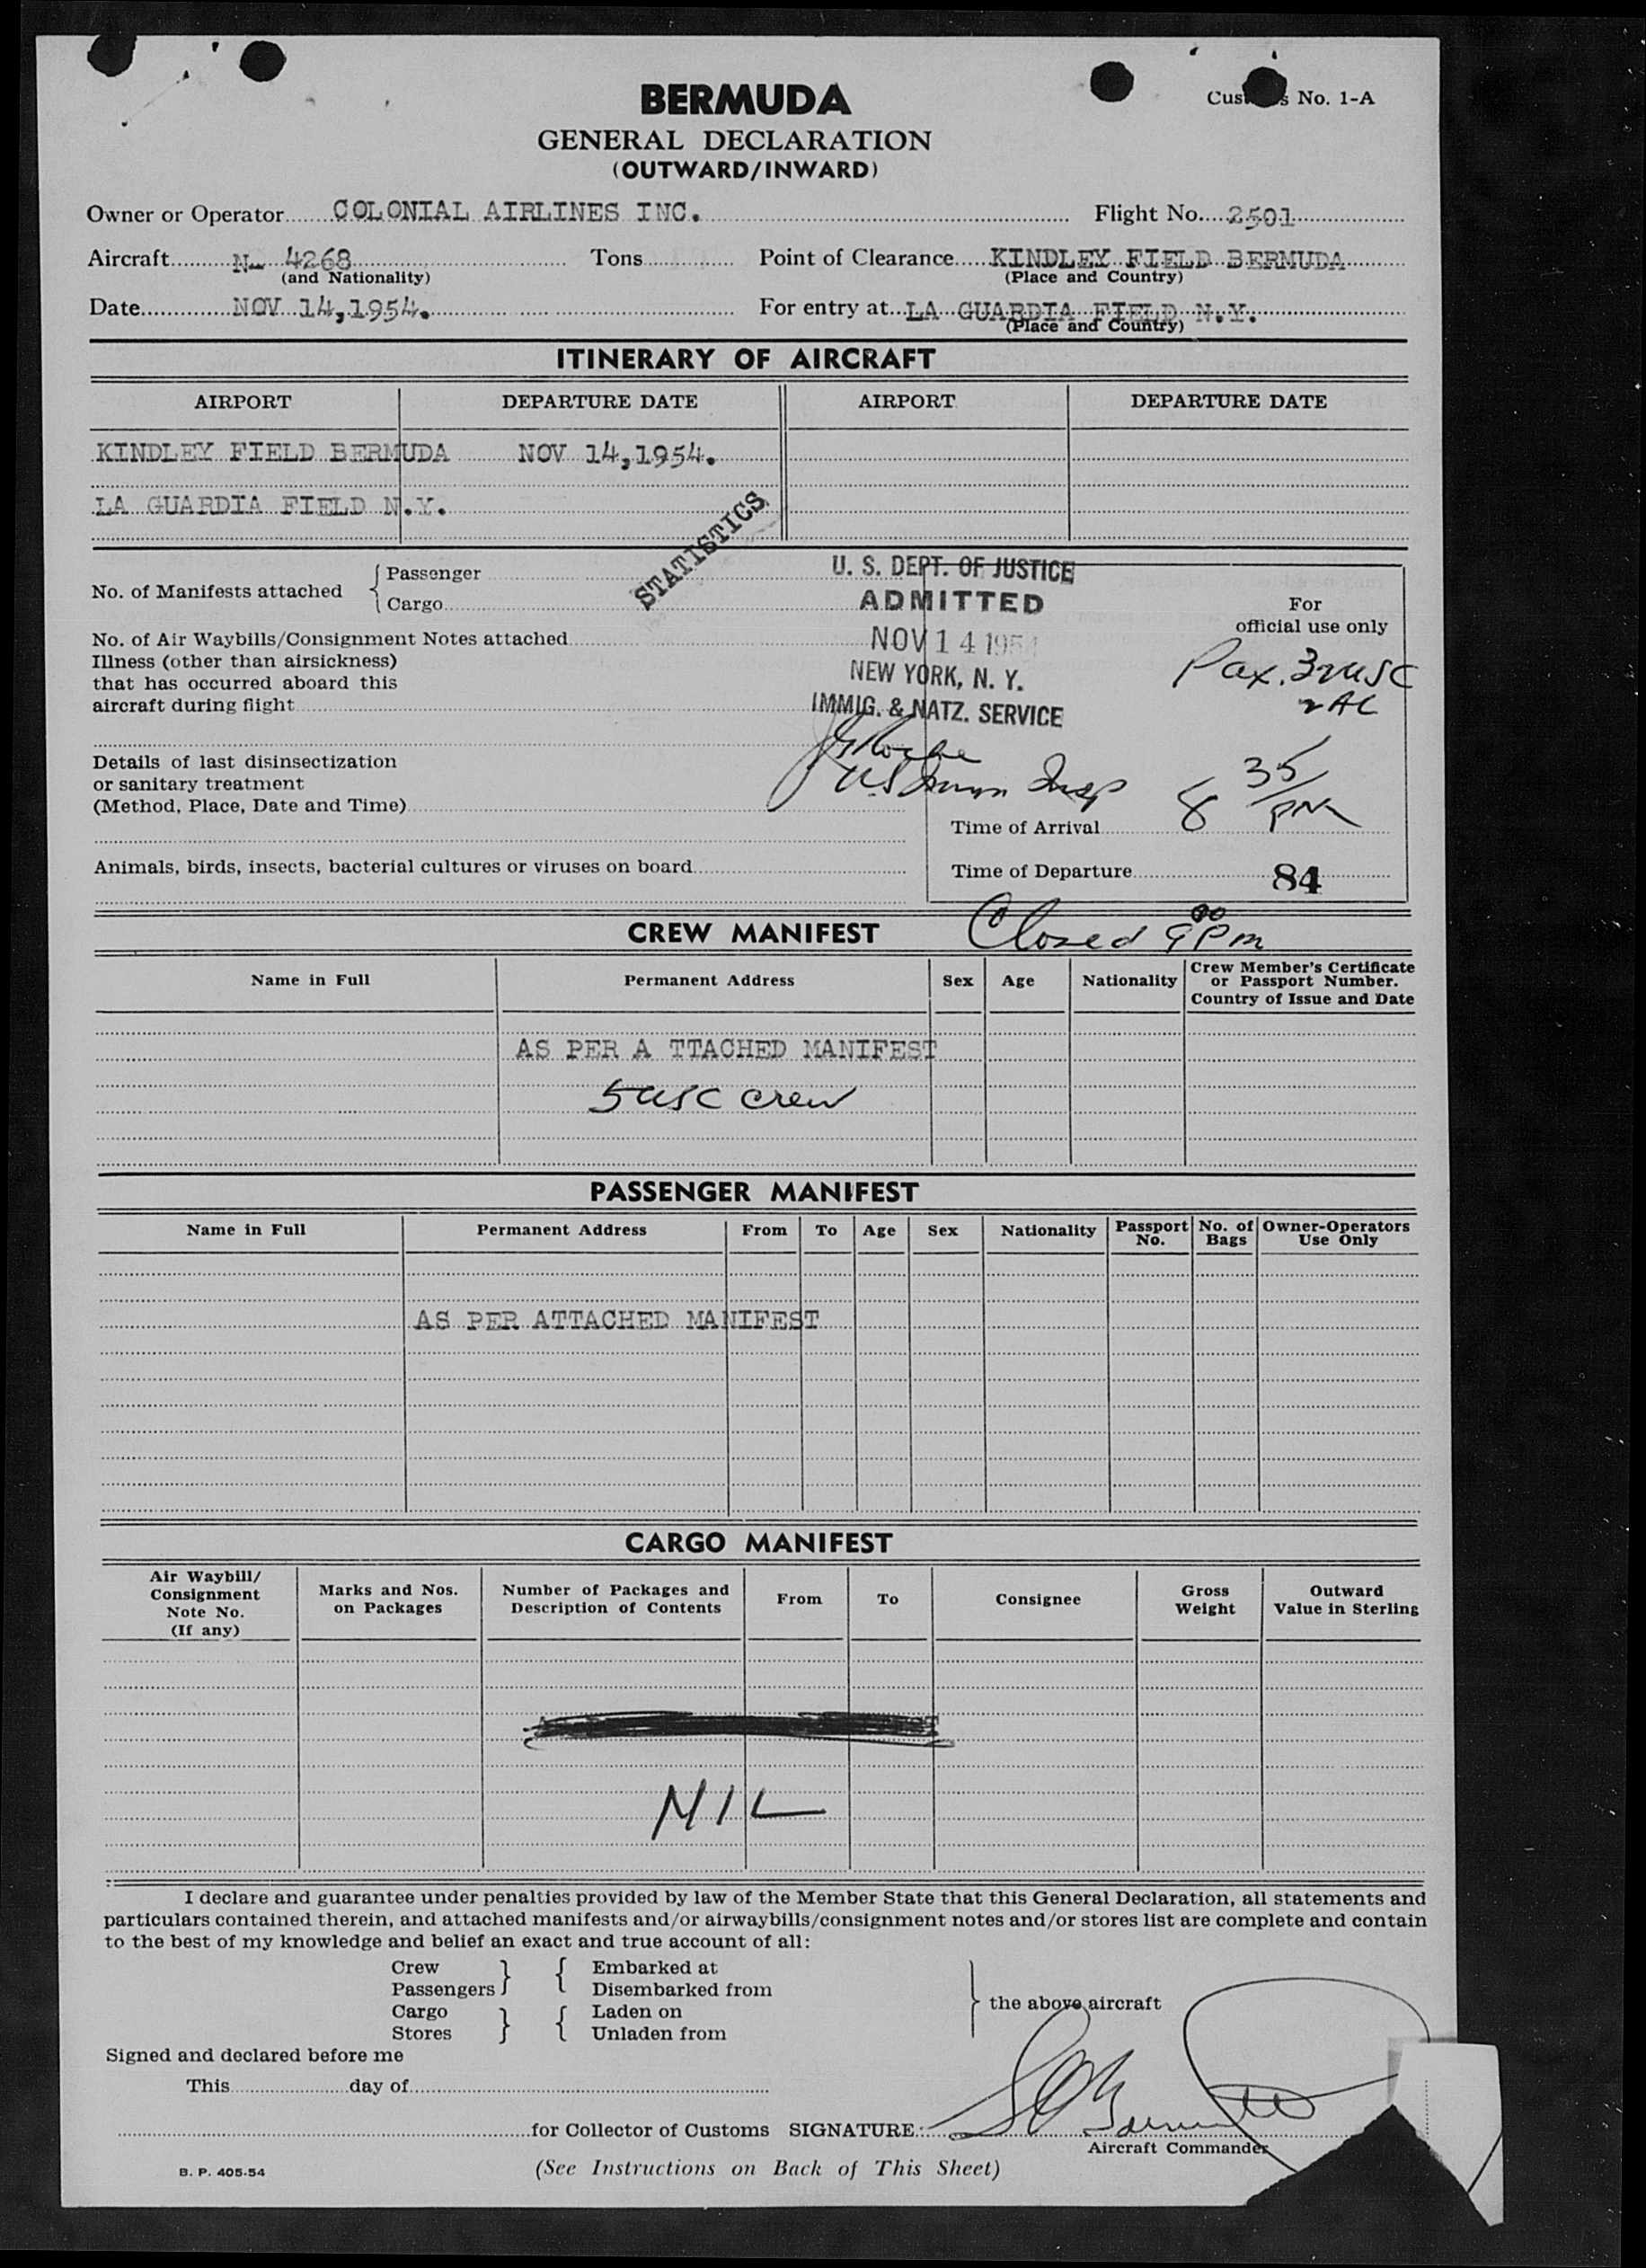 BERMUDA
Customs No. 1-A
GENERAL DECLARATION
(OUTWARD/INWARD)
Owner or Operator COLONIAL AIRLINES INC. Flight No. 2501
Aircraft N- 4268 Tons Point of Clearance KINDLEY FIELD BERMUDA
(and Nationality) (Place and Country)
Date NOV 14,1954. For entry at LA GUARDIA FIELD N.Y.
(Place and Country)
ITINERARY OF AIRCRAFT
AIRPORT DEPARTURE DATE AIRPORT DEPARTURE DATE
KINDLEY FIELD BERMUDA NOV 14,1954.
LA GUARDIA FIELD N.Y.
STATISTICS
No. of Manifests attached { Passenger
Cargo
U. S. DEPT. OF JUSTICE
ADMITTED
NOV 14 1954
NEW YORK, N. Y.
IMMIG. & NATZ. SERVICE
US Immn Insp
For
official use only
Pax. 32 USC
2 AC
No. of Air Waybills/Consignment Notes attached
Illness (other than airsickness)
that has occurred aboard this
aircraft during flight
Details of last disinsectization
or sanitary treatment
(Method, Place, Date and Time)
Time of Arrival 8 35/PM
Animals, birds, insects, bacterial cultures or viruses on board
Time of Departure 84
CREW MANIFEST Closed 9 00 Pm
Name in Full Permanent Address Sex Age Nationality Crew Member's Certificate
or Passport Number.
Country of Issue and Date
AS PER A TTACHED MANIFEST
5 USC crew
PASSENGER MANIFEST
Name in Full Permanent Address From To Age Sex Nationality Passport No. No. of Bags Owner-Operators Use Only
AS PER ATTACHED MANIFEST
CARGO MANIFEST
Air Waybill/ Consignment Note No. (If any) Marks and Nos. on Packages Number of Packages and Description of Contents From To Consignee Gross Weight Outward Value in Sterling
NIL
I declare and guarantee under penalties provided by law of the Member State that this General Declaration, all statements and
particulars contained therein, and attached manifests and/or airwaybills/consignment notes and/or stores list are complete and contain
to the best of my knowledge and belief an exact and true account of all:
Crew } { Embarked at
Passengers } { Disembarked from
Cargo } { Laden on
Stores } { Unladen from
} the above aircraft
Signed and declared before me
This day of
for Collector of Customs SIGNATURE:
Aircraft Commander
B. P. 405-54
(See Instructions on Back of This Sheet)